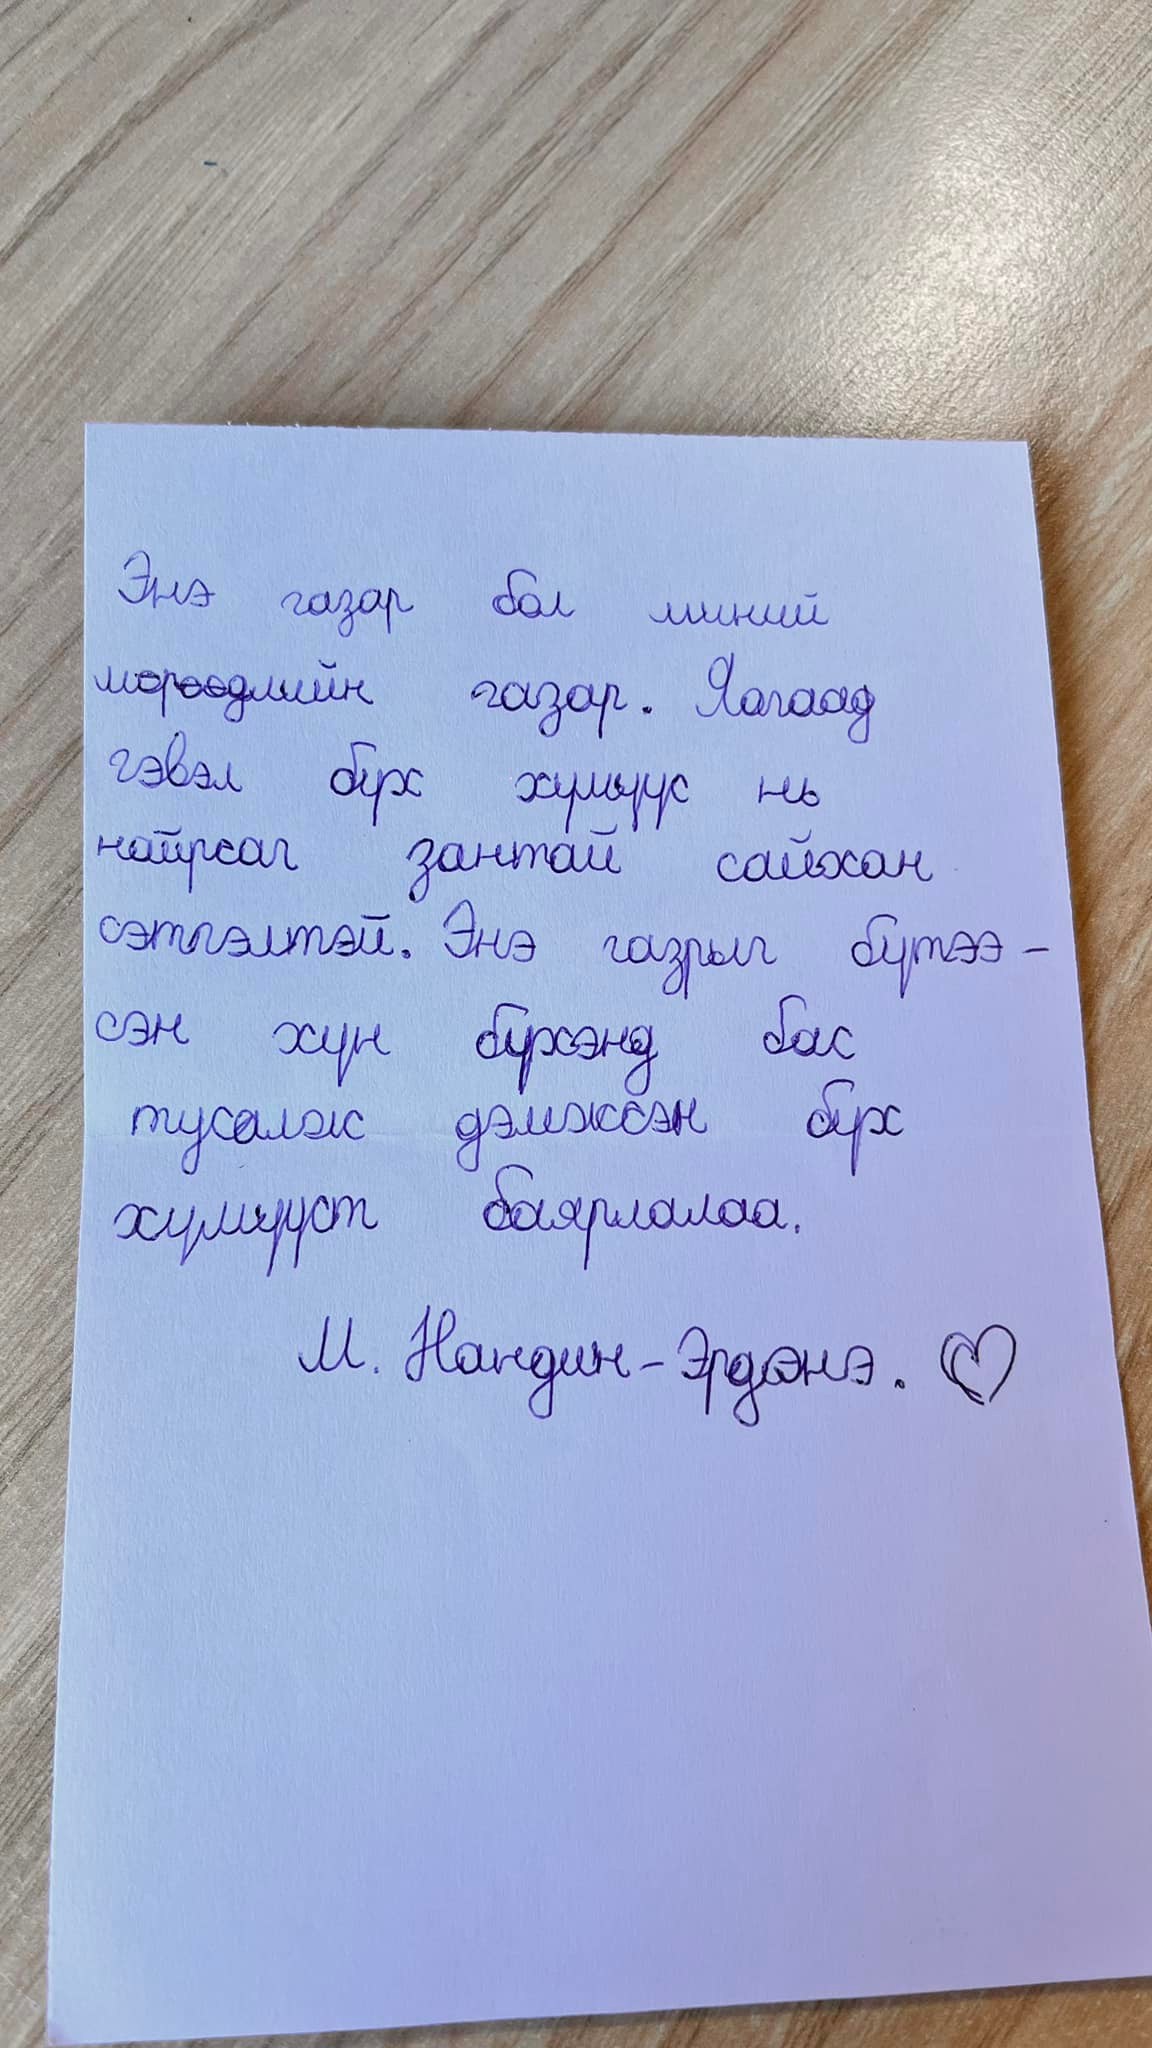 Энэ газар бол миний
мөрөөдлийн газар. Яагаад
гэвэл бүх хүмүүс нь
найрсаг зантай сайхан
сэтгэлтэй. Энэ газрыг бүтээ-
сэн хүн бүхэнд бас
тусалж дэмжсэн бүх
хүмүүст баярлалаа.
М. Нандин-Эрдэнэ.